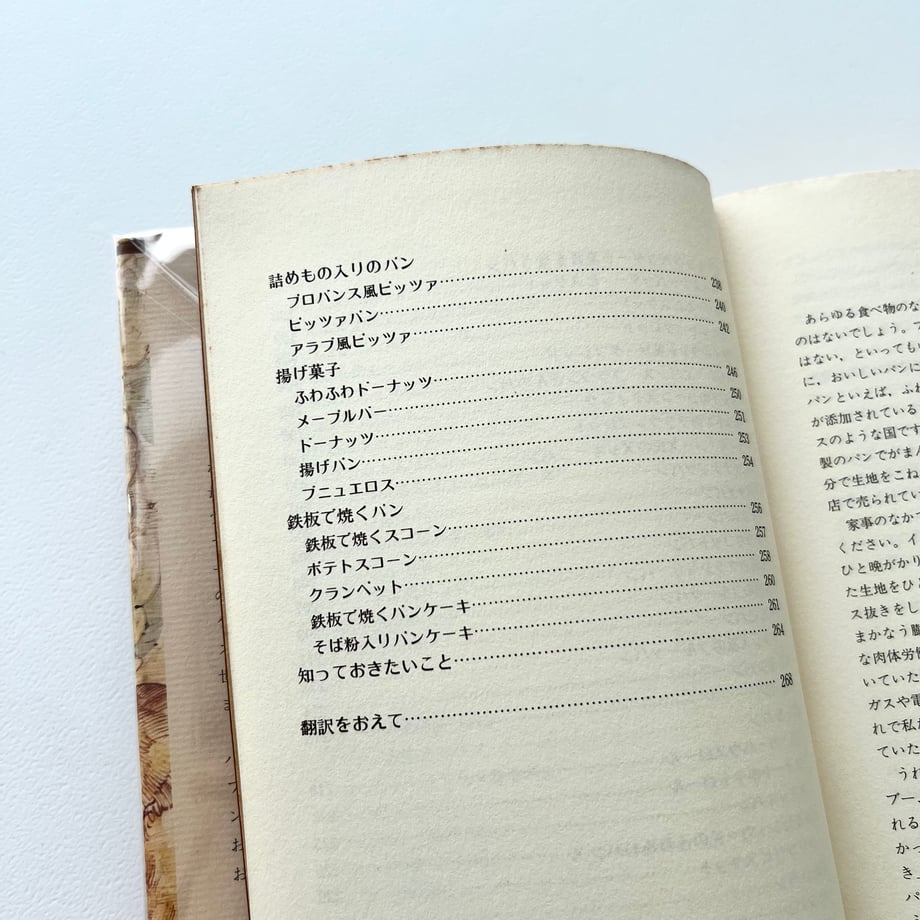 詰めもの入りのパン
プロバンス風ピッツァ 238
ピッツァパン 240
アラブ風ピッツァ 242
揚げ菓子
ふわふわドーナッツ 246
メープルバー 250
ドーナッツ 251
揚げパン 253
ブニュエロス 254
鉄板で焼くパン
鉄板で焼くスコーン 256
ポテトスコーン 257
クランペット 258
鉄板で焼くパンケーキ 260
そば粉入りパンケーキ 261
知っておきたいこと 264
翻訳をおえて 268
あらゆる食べ物のな
のはないでしょう。
はない，といっても
に，おいしいパンに
パンといえば，ふ
が添加されている
スのような国です
製のパンでがまん
分で生地をこね
店で売られてい
家事のなかで
ください。イ
ひと晩がかり
た生地をひ
ス抜きをし
まかなう
な肉体労働
いていた
ガスや電
れで私が
ていた
うれ
ブー
れる
かっ
き
パ